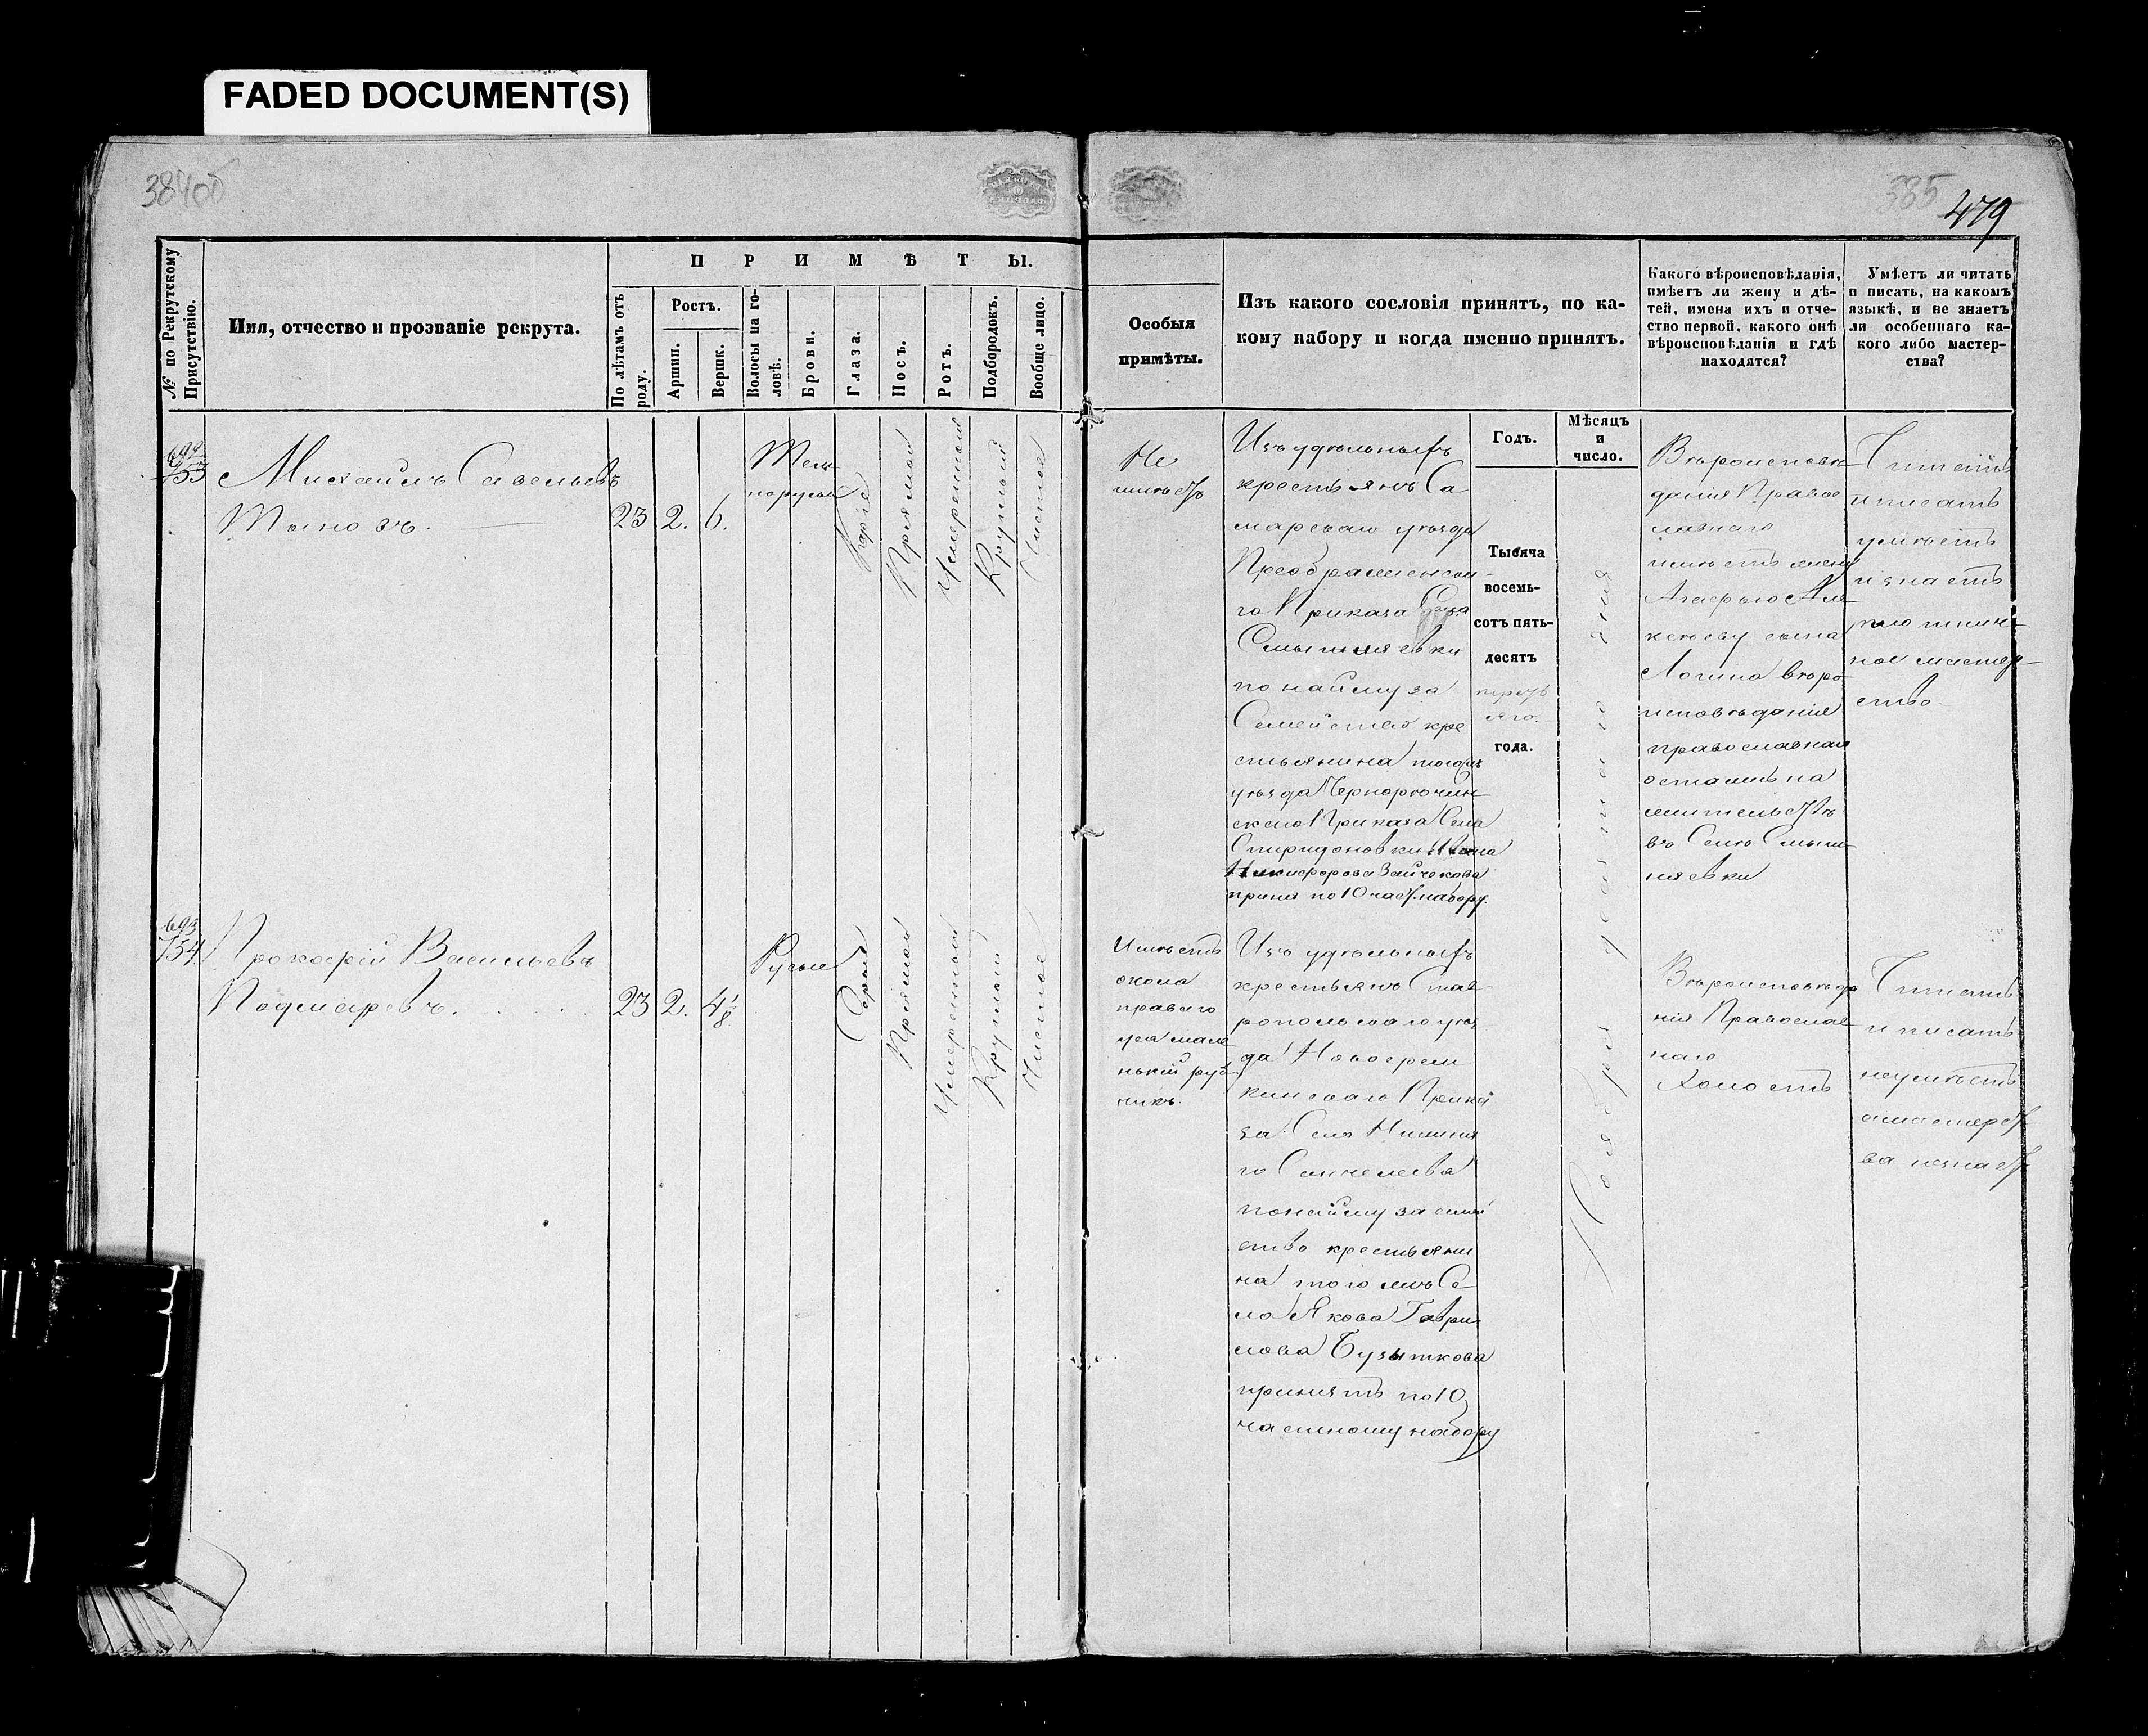 FADED DOCUMENT(S)
384об
385
479
№ по Рекрутскому
Присутствію.
Имя, отчество и прозваніе рекрута.
ПРИМѢТЫ.
По лѣтамъ отъ
роду.
Ростъ.
Аршин.
Вершк.
Волосы на го-
ловѣ.
Брови.
Глаза.
Носъ.
Ротъ.
Подбородокъ.
Вообще лицо.
Особыя
примѣты.
Изъ какого сословія принятъ, по ка-
кому набору и когда именно принятъ.
Какого вѣроисповѣданія,
имѣетъ ли жену и дѣ-
тей, имена ихъ и отче-
ство первой, какого онѣ
вѣроисповѣданія и гдѣ
находятся?
Умѣетъ ли читать
и писать, на какомъ
языкѣ, и не знаетъ
ли особеннаго ка-
кого либо мастер-
ства?
Годъ.
Мѣсяцъ
и
число.
753
Михаилъ Савельевъ
23
2.
6.
Темн-
норусыя
Каріе
Прямой
Умеренный
Круглый
Чистое
Не
имѣетъ
Изъ удѣльныхъ
крестьянъ Са
марскаго уѣзда
Преображенска-
го Приказа Села
Смышляевки
по найму за
Семейство кре
стьянина тогожъ
уѣзда Черноречин-
скаго Приказа Села
Спиридоновки Ивана
Никифорова Зайчекова
принятъ по 10 част. набору.
Тысяча
восемь-
сотъ пять-
десятъ
третьяго
года.
Ноября девятаго дня
Вѣроисповѣ
данія Право
славнаго
имѣетъ жену
Агафью Але
ксѣеву сына
Логина вѣро
исповѣданія
православнаго
остались на
жительствѣ
въ Селѣ Смыш
ляевки
Читать
и писать
умѣетъ
и знаетъ
плотнич-
ное мастер-
ство
693
754
Прокофій Васильевъ
23
2.
4 1/8.
Русые
Серые
Прямой
Умеренный
Круглый
Чистое
Имѣетъ
окола
праваго
уса мале
нькій руб-
чикъ.
Изъ удѣльныхъ
крестьянъ Став
ропольскаго уѣз
да Новоерем
кинскаго Прика
за Села Нижня
го Санчелеева
по найму за семей
ство крестьяни
на того же Се
ла Якова Гаври
лова Бузыткова
принятъ по 10
частному набору
Вѣроисповѣда
нія Православ
наго
Холостъ
Читать
и писать
неумѣетъ
а мастерст
ва незнаетъ